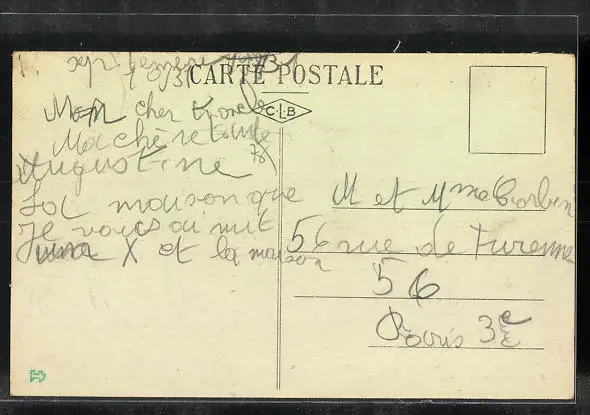 septembre
1931
CARTE POSTALE
C·L·B
Mon cher troncle
Ma chère tante
Augustine
La maison que
Je vous ai mit
une X et la maison
M et Mme Corbin
56 rue de Turenne
56
Paris 3e